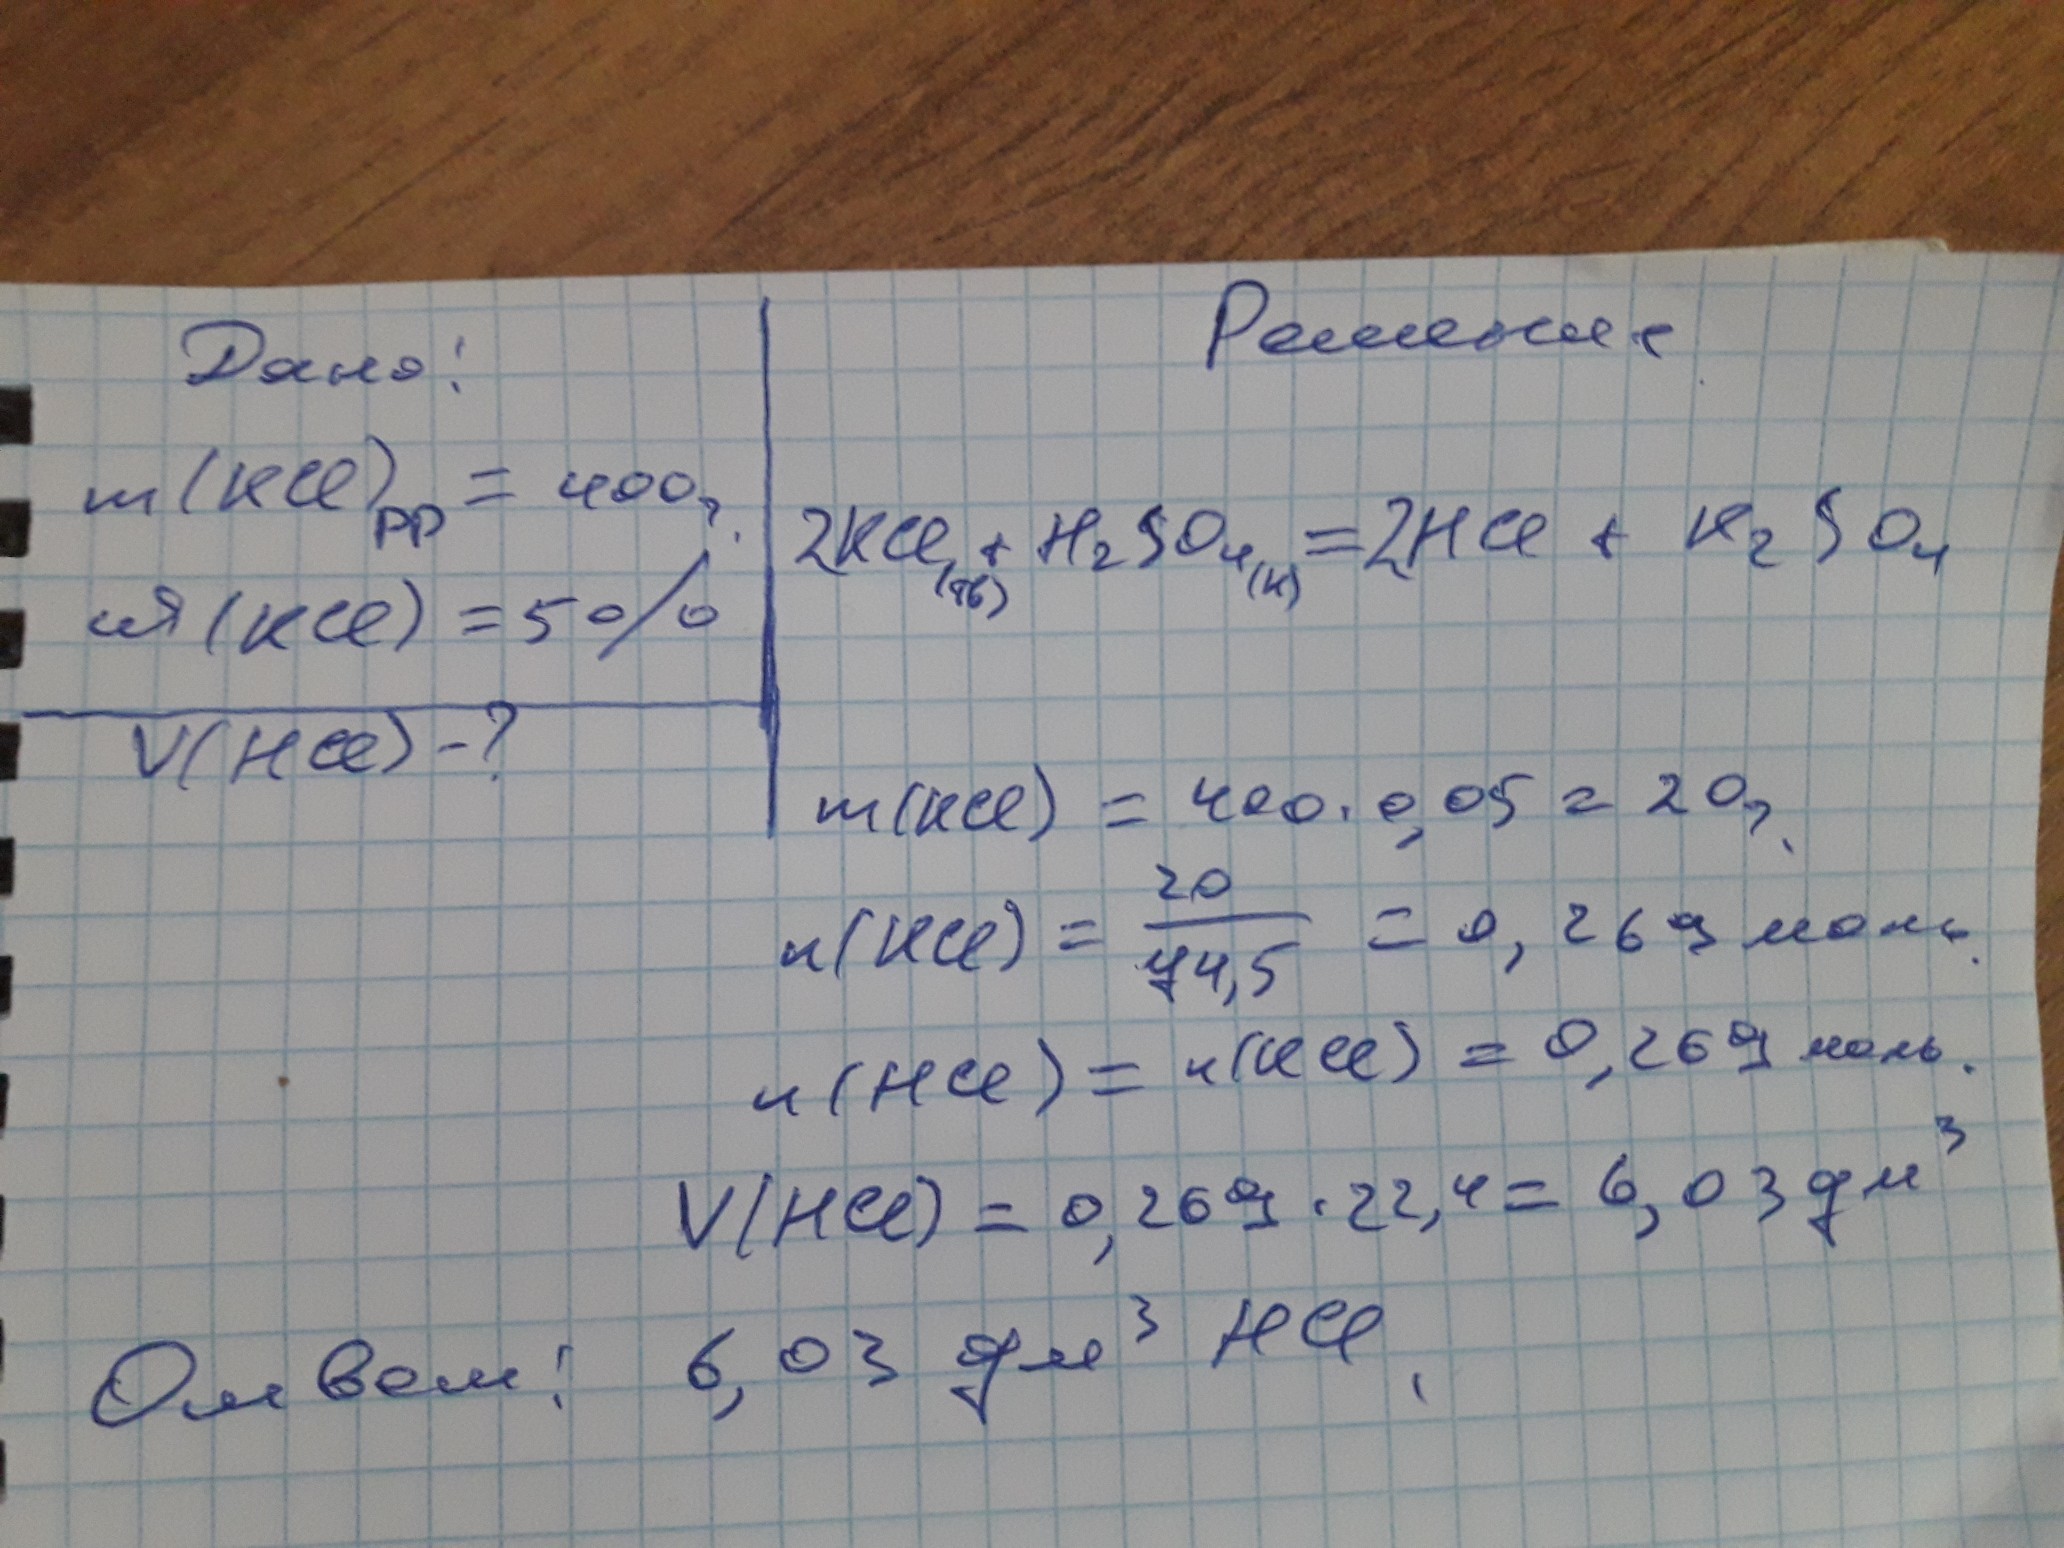 Дано:
m(KCl)рр = 400г.
ω(KCl) = 5%
V(HCl) - ?
Решение
2KCl(тв) + H₂SO₄(к) = 2HCl + K₂SO₄
m(KCl) = 400 · 0,05 = 20г.
n(KCl) = 20/74,5 = 0,269 моль.
n(HCl) = n(KCl) = 0,269 моль.
V(HCl) = 0,269 · 22,4 = 6,03 дм³
Ответ: 6,03 дм³ HCl.